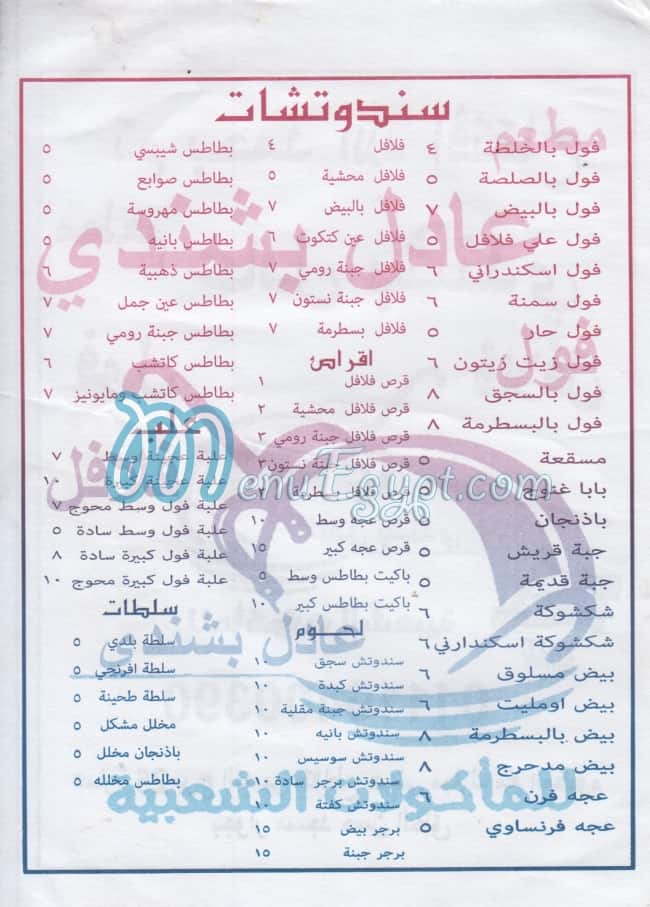 سندوتشات
فول بالخلطة ٤
فول بالصلصة ٥
فول بالبيض ٧
فول علي فلافل ٥
فول اسكندراني ٦
فول سمنة ٦
فول حار ٥
فول زيت زيتون ٦
فول بالسجق ٨
فول بالبسطرمة ٨
مسقعة ٥
بابا غنوج ٥
باذنجان ٥
جبة قريش ٥
جبة قديمة ٥
شكشوكة ٦
شكشوكة اسكندارني ٦
بيض مسلوق ٦
بيض اومليت ٦
بيض بالبسطرمة ٨
بيض مدحرج ٨
عجه فرن ٦
عجه فرنساوي ٥
فلافل ٤
فلافل محشية ٥
فلافل بالبيض ٧
فلافل عين كتكوت ٦
فلافل جبنة رومي ٧
فلافل جبنة نستون ٧
فلافل بسطرمة ٧
اقراص
قرص فلافل ١
قرص فلافل محشية ٢
قرص فلافل جبنة رومي ٣
قرص فلافل جبنة نستون ٣
قرص فلافل بسطرمة ٣
قرص عجه وسط ١٠
قرص عجه كبير ١٥
باكيت بطاطس وسط ٥
باكيت بطاطس كبير ١٠
لحوم
سندوتش سجق ١٠
سندوتش كبدة ١٠
سندوتش جبنة مقلية ١٠
سندوتش بانيه ١٠
سندوتش سوسيس ١٠
سندوتش برجر سادة ١٠
سندوتش كفتة ١٠
برجر بيض ١٥
برجر جبنة ١٥
بطاطس شيبسي ٥
بطاطس صوابع ٥
بطاطس مهروسة ٥
بطاطس بانيه ٥
بطاطس ذهبية ٦
بطاطس عين جمل ٧
بطاطس جبنة رومي ٧
بطاطس كاتشب ٦
بطاطس كاتشب ومايونيز ٧
علب
علبة عجينة وسط ٧
علبة عجينة كبيرة ١٠
علبة فول وسط محوج ٧
علبة فول وسط سادة ٥
علبة فول كبيرة سادة ٨
علبة فول كبيرة محوج ١٠
سلطات
سلطة بلدي ٥
سلطة افرنجي ٥
سلطة طحينة ٥
مخلل مشكل ٥
باذنجان مخلل ٥
بطاطس مخلله ٥
مطعم
عادل بشندي
فول
فلافل
عادل بشندي
للمأكولات الشعبية
MenuEgypt.com